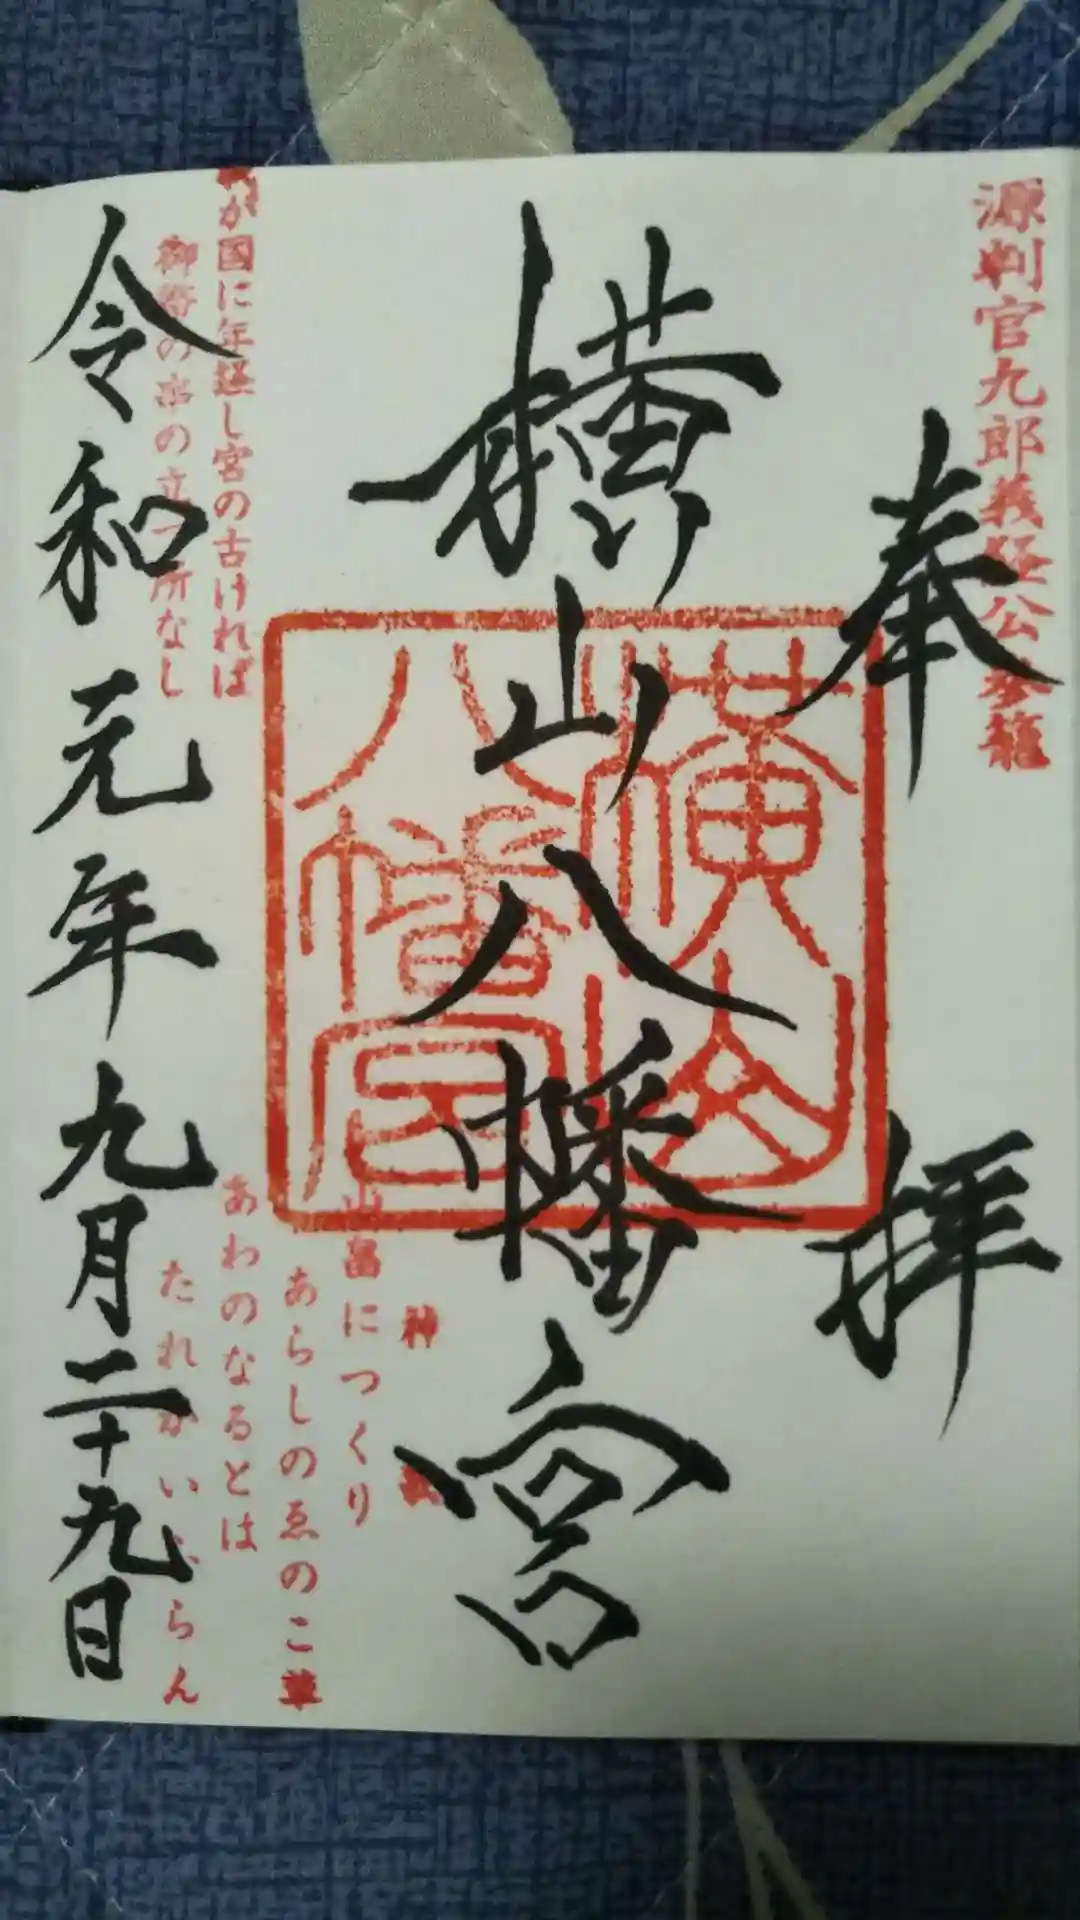 源判官九郎義経公参籠
奉拝
横山八幡宮
横山
八幡宮
神
山畠につくり
あらしのゑのこ草
あわのなるとは
たれかいふらん
が国に年経し宮の古ければ
御幣の串の立つ所なし
令和元年九月二十九日